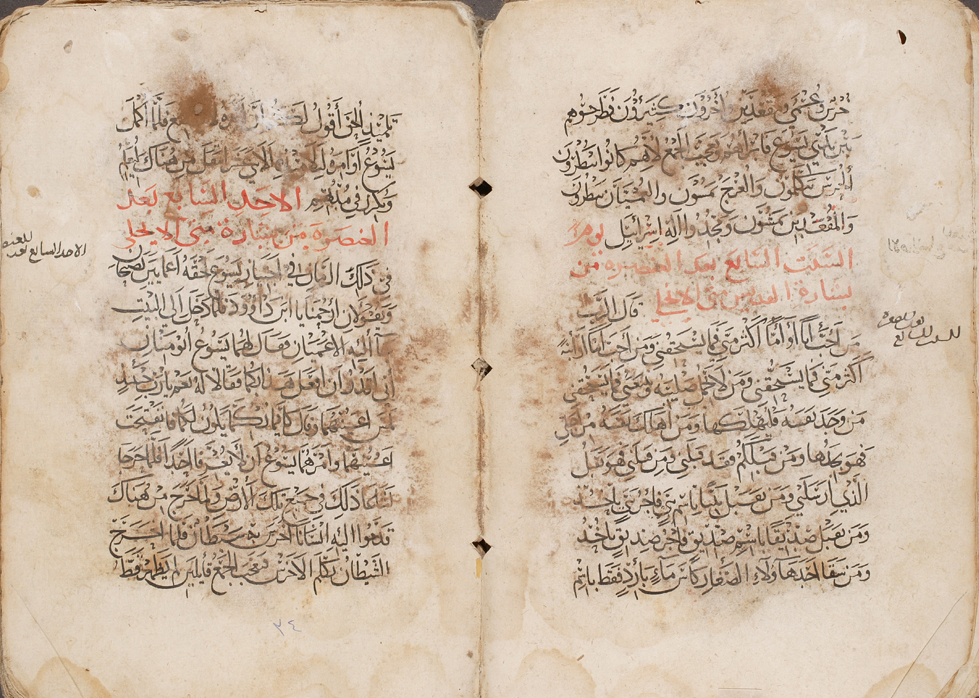 خرس وعمي ومقعدين وآخرون كثيرون وطرحوهم
بين يدي يسوع فتعجب الجمع لانهم كانوا ينظرون
الخرس يتكلمون والعرج يمشون والعميان ينظرون
والمقعدين يمشون ومجدوا الاه اسرائيل يوم
السبت السابع بعد العنصره من
بشارة القديس متى الانجيلي قال الرب
من احب اباً او اماً اكثر مني فما يستحقني ومن احب ابناً او ابنة
اكثر مني فما يستحقني ومن لا يحمل صليبه ويتبعني فما يستحقني
من وجد نفسه فليهلكها ومن اهلك نفسه من اجلي
فهو يجدها ومن قبلكم فقد قبلني ومن قبلني فهو يقبل
الذي ارسلني ومن يقبل نبياً باسم نبي فاجر نبي ياخذ
ومن يقبل صديقاً باسم صديق فاجر صديق ياخذ
ومن سقا احد هاولاء الصغار كاس ماء بارد فقط باسم
تلميذ الحق اقول لكم فلما اكمل
يسوع اوامره انتقل من هناك ليعلم
ويكرز في مدنهم الاحد السابع بعد
العنصرة من بشارة متى الانجيلي
في ذلك الزمان اجتاز يسوع لحقه اعميين يصيحان
ويقولان ارحمنا يا ابن داوود فلما دخل الى البيت
جاآ اليه الاعميان فقال لهما يسوع اتومنان
اني اقدر ان افعل هذا بكما فقالا له نعم يارب حينيذ
لمس اعينهما وقال كايمانكما يكون لكما فانفتحت
اعينهما وامرهما يسوع ان لا يعرف احداً فلما خرجا
اشاعا ذلك في جميع تلك الارض ولما خرج من هناك
قدموا اليه انساناً اخرس به شيطان فلما اخرج
الشيطان تكلم الاخرس فتعجب الجمع قايلين لم يظهر قط
الاحد السابع بعد العنصره
٢٤